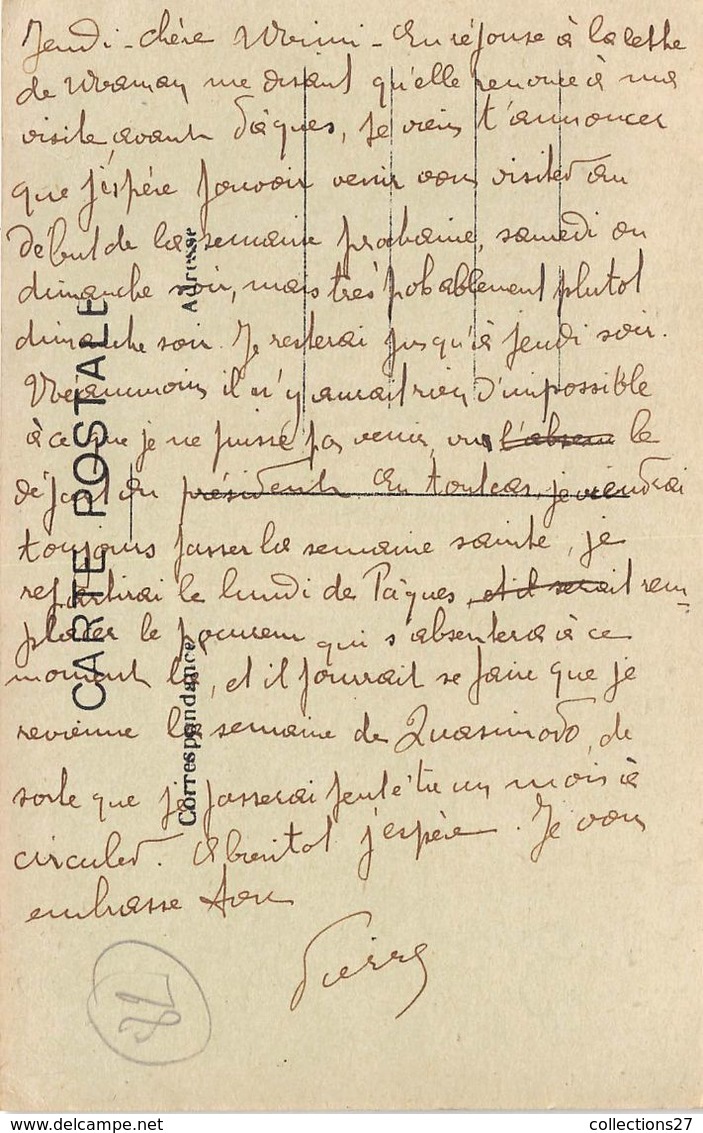 Jeudi - chère Mimi - En réponse à la lettre
de Maman me disant qu'elle renonce à ma
visite avant Pâques, je viens t'annoncer
que j'espère pouvoir venir vous visiter au
début de la semaine prochaine, samedi ou
dimanche soir, mais très probablement plutot
dimanche soir. Je resterai jusqu'à jeudi soir.
Néanmoins il n'y aurait rien d'impossible
à ce que je ne puisse pas venir, vu l'absen le
départ du président. En tout cas, je viendrai
toujours passer la semaine sainte, je
repartirai le lundi de Pâques, et il serait rem-
placer le procureur qui s'absentera à ce
moment là, et il pourrait se faire que je
revienne la semaine de Quasimodo, de
sorte que je passerai peut être un mois à
circuler. A bientot j'espère. Je vous
embrasse tous
Pierre
CARTE POSTALE
Correspondance
Adresse
82
collections27